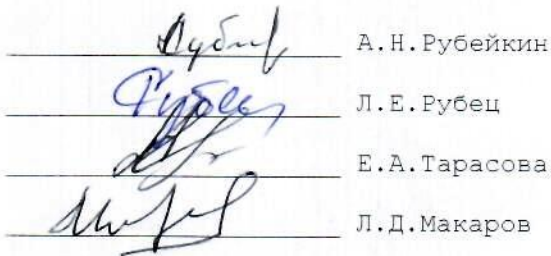 А.Н.Рубейкин
Л.Е.Рубец
Е.А.Тарасова
Л.Д.Макаров